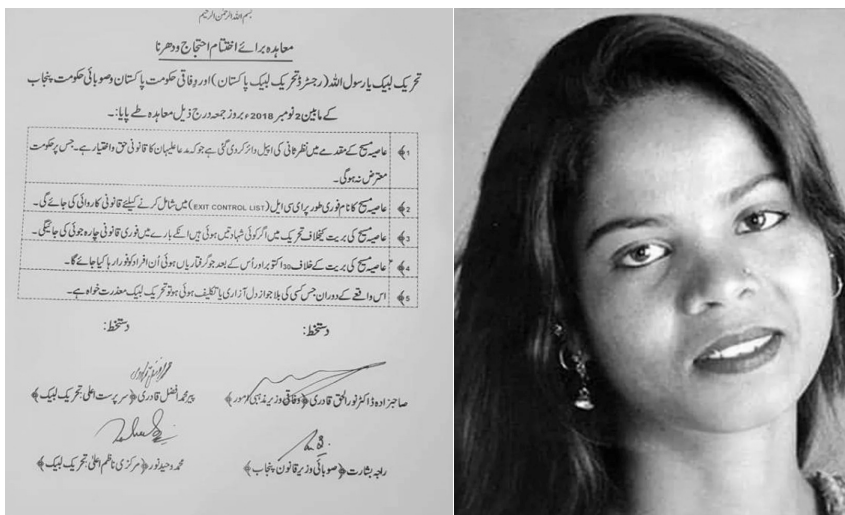 بسم اللہ الرحمٰن الرحیم
معاہدہ برائے اختتام احتجاج و دھرنا
تحریک لبیک یا رسول اللہ (رجسٹرڈ تحریک لبیک پاکستان) اور وفاقی حکومت پاکستان و صوبائی حکومت پنجاب
کے مابین 2 نومبر 2018ء بروز جمعہ درج ذیل معاہدہ طے پایا:۔
1﴾ عاصیہ مسیح کے مقدمے میں نظر ثانی کی اپیل دائر کر دی گئی ہے جو کہ مدعا علیہان کا قانونی حق و اختیار ہے۔ جس پر حکومت
معترض نہ ہوگی۔
2﴾ عاصیہ مسیح کا نام فوری طور پر ای سی ایل (EXIT CONTROL LIST) میں شامل کرنے کیلئے قانونی کاروائی کی جائے گی۔
3﴾ عاصیہ مسیح کی بریت کیخلاف تحریک میں اگر کوئی شہادتیں ہوئی ہیں انکے بارے میں فوری قانونی چارہ جوئی کی جائیگی۔
4﴾ عاصیہ مسیح کی بریت کے خلاف 30 اکتوبر اور اُس کے بعد جو گرفتاریاں ہوئی اُن افراد کو فوراً رہا کیا جائے گا۔
5﴾ اس واقعے کے دوران جس کسی کی بلا جواز دل آزاری یا تکلیف ہوئی ہو تو تحریک لبیک معذرت خواہ ہے۔
دستخط: دستخط:
صاحبزادہ ڈاکٹر نور الحق قادری ﴿وفاقی وزیر مذہبی امور﴾ پیر محمد افضل قادری ﴿سرپرست اعلیٰ تحریک لبیک﴾
راجہ بشارت ﴿صوبائی وزیر قانون پنجاب﴾ محمد وحید نور ﴿مرکزی ناظم اعلیٰ تحریک لبیک﴾